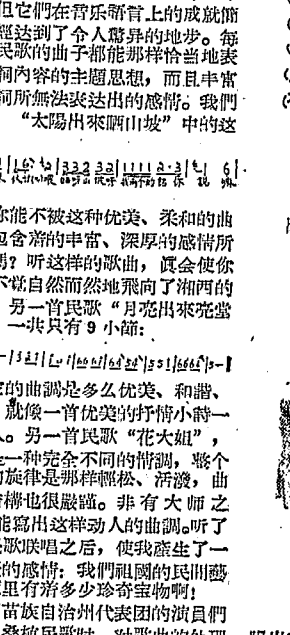 但它們在音乐語言上的成就簡
經达到了令人驚异的地步。每
民歌的曲子都能那样恰当地表
詞內容的主題思想，而且丰富
詞所無法表达出的感情。我們
“太陽出來晒山坡”中的这
你能不被这种优美、柔和的曲
包含着的丰富、深厚的感情所
嗎？听这样的歌曲，眞会使你
不觉自然而然地飛向了湘西的
另一首民歌“月亮出來亮堂
一共只有9小節：
的曲調是多么优美、和諧、
就像一首优美的抒情小詩一
。另一首民歌“花大姐”，
一种完全不同的情調，整个
旋律是那样輕松、活潑，曲
構也很嚴謹。非有大师之
能寫出这样动人的曲調。听了
歌联唱之后，使我產生了一
的感情：我們祖國的民間藝
里有着多少珍奇宝物啊！
苗族自治州代表团的演員們